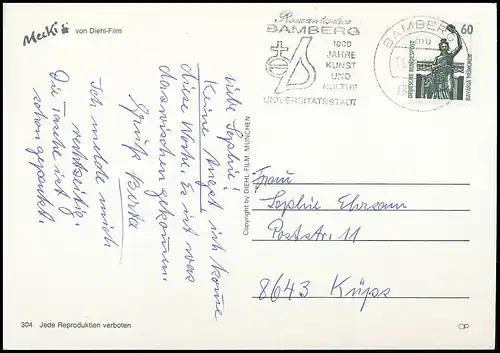 Mecki von Diehl-Film
Romantisches
BAMBERG
1000
JAHRE
KUNST
UND
KULTUR
UNIVERSITÄTSSTADT
BAMBERG
60
DEUTSCHE BUNDESPOST
BAVARIA MÜNCHEN
Liebe Sophie!
Keine Angst ich komme
diese Woche. Es ist was
dazwischen gekommen.
Grüße
Ich melde mich
rechtzeitig.
Die Tasche ist
schon gepackt.
Copyright by DIEHL-FILM, MÜNCHEN
Frau
Sophie Ehrsam
Poststr. 11
8643 Küps
304 Jede Reproduktion verboten